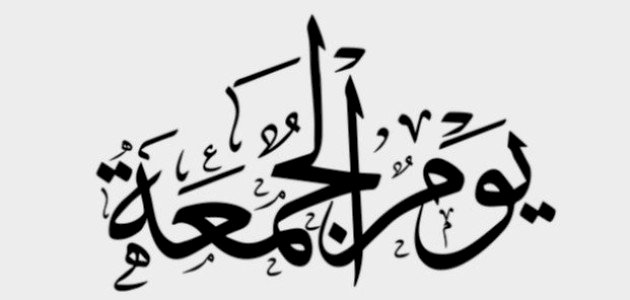 يوم الجمعة